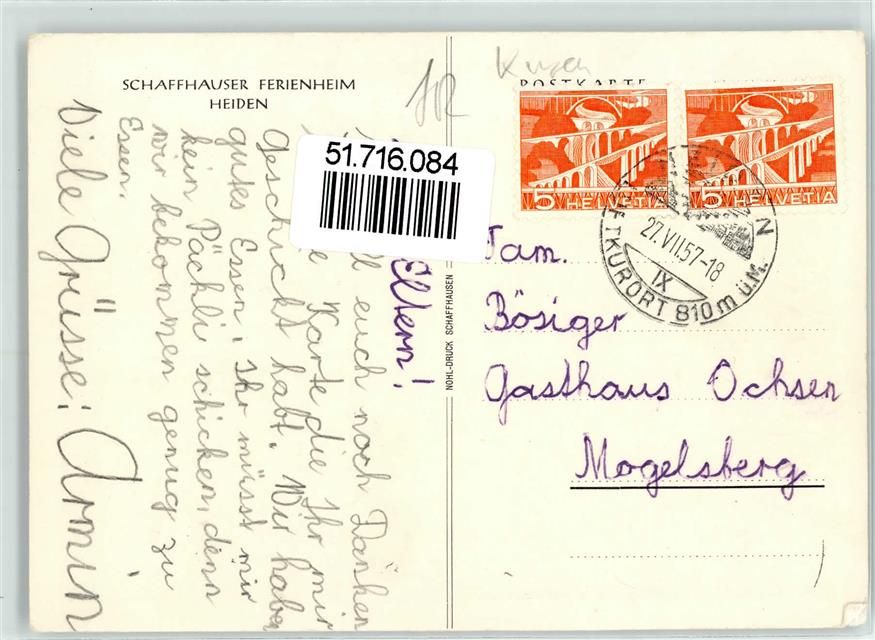 SCHAFFHAUSER FERIENHEIM
HEIDEN
POSTKARTE
51.716.084
5 HELVETIA
5 HELVETIA
27.VII.57-18
IX
LUFTKURORT 810 m ü.M.
NOHL-DRUCK SCHAFFHAUSEN
Fam.
Bösiger
Gasthaus Ochsen
Mogelsberg
Eltern!
euch noch Danken
Karte die Ihr mir
Geschickt habt. Wir haben
gutes Essen. Ihr müsst mir
kein Päckli schicken, denn
wir bekommen genug zu
Essen.
Viele Grüsse: Armin